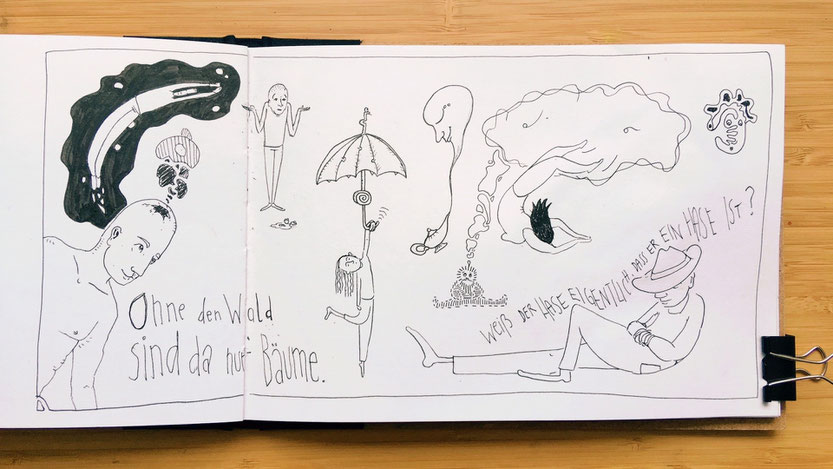 Ohne den Wald
sind da nur Bäume.
WEIß DER HASE EIGENTLICH, DASS ER EIN HASE IST?